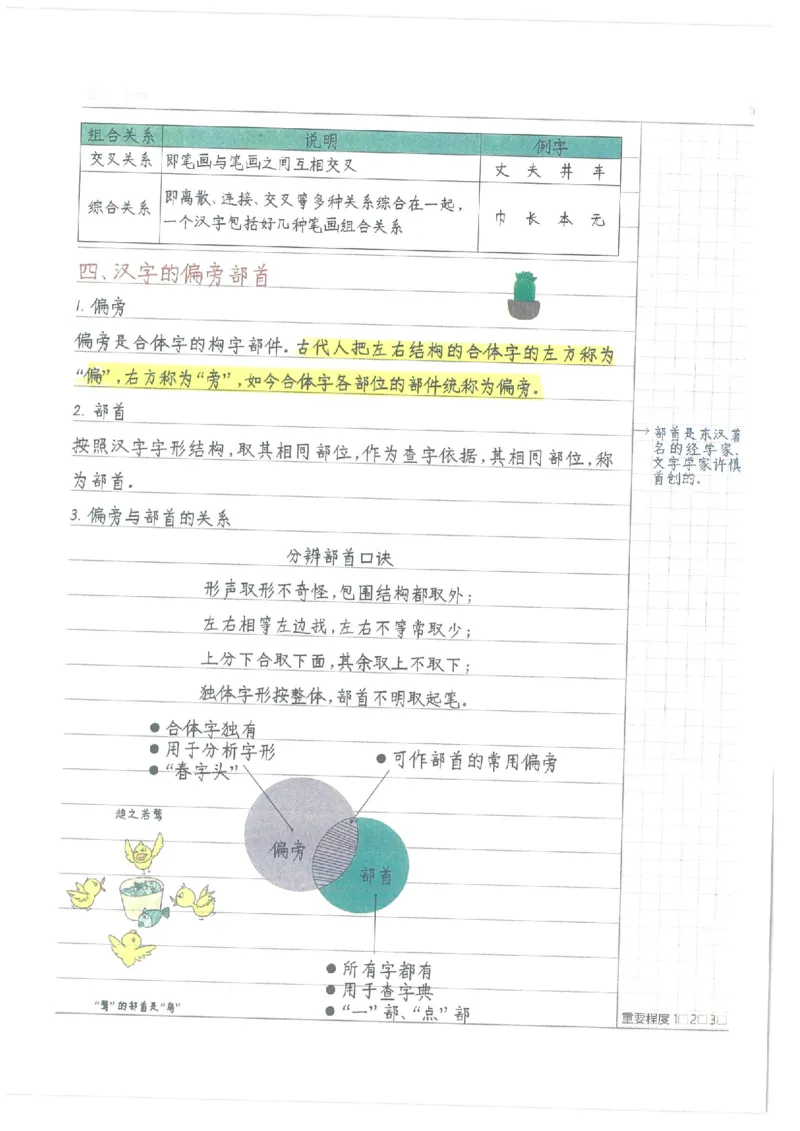 9
组合关系 说明 例字
交叉关系 即笔画与笔画之间互相交叉 丈 夫 井 车
综合关系 即离散、连接、交叉等多种关系综合在一起，
一个汉字包括好几种笔画组合关系 巾 长 本 元
四、汉字的偏旁部首
1. 偏旁
偏旁是合体字的构字部件。古代人把左右结构的合体字的左方称为
“偏”，右方称为“旁”，如今合体字各部位的部件统称为偏旁。
2. 部首
按照汉字字形结构，取其相同部位，作为查字依据，其相同部位，称
为部首。
部首是东汉著
名的经学家、
文字学家许慎
首创的。
3. 偏旁与部首的关系
分辨部首口诀
形声取形不奇怪，包围结构都取外；
左右相等左边找，左右不等常取少；
上分下合取下面，其余取上不取下；
独体字形按整体，部首不明取起笔。
● 合体字独有
● 用于分析字形
● “春字头”
● 可作部首的常用偏旁
趋之若鹜
偏旁
部首
● 所有字都有
● 用于查字典
● “一”部、“点”部
“鹜”的部首是“鸟”
重要程度 1□ 2□ 3□